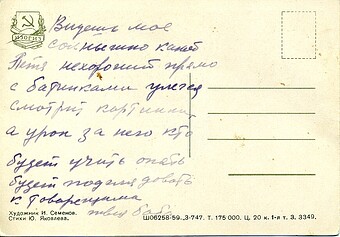 ИЗОГИЗ
Видешь мое
солнышко какой
Петя нехороший прямо
с батинками улегся
смотрит картинки
а урок за него кто
будет учить опять
будет
к товарищима
твая баба
Художник И. Семенов.
Стихи Ю. Яковлева.
Ш06258-59. 3-747. Т. 175 000. Ц. 20 к. I-я т. З. 3349.